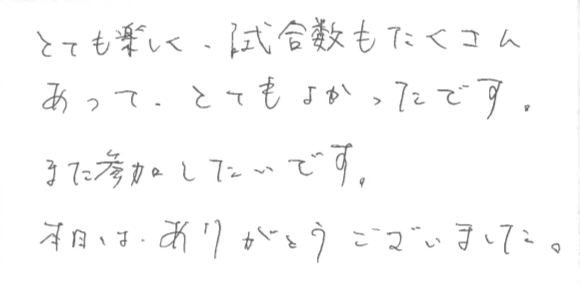 とても楽しく、試合数もたくさん
あって、とてもよかったです。
また参加したいです。
本日は、ありがとうございました。